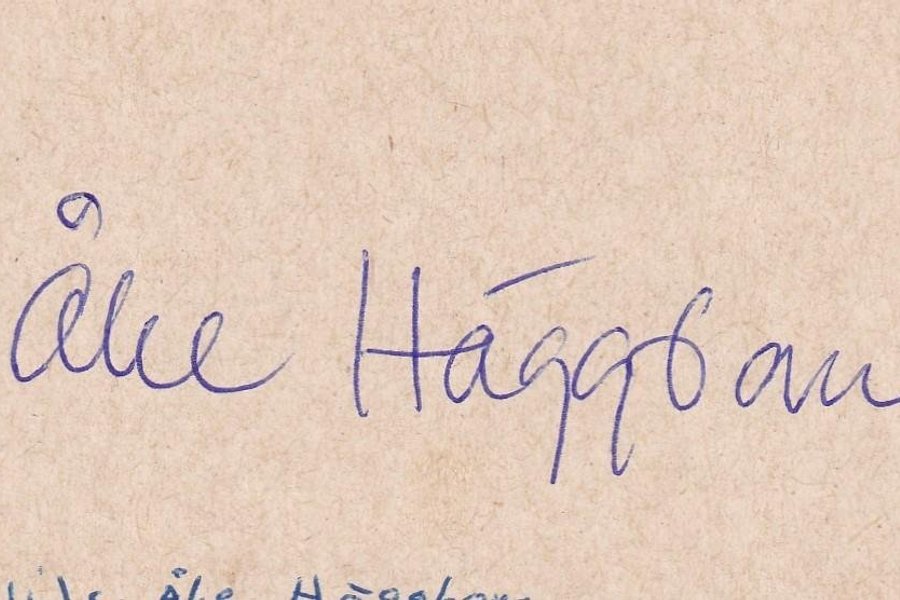 Åke Häggbom
Åke Häggbom